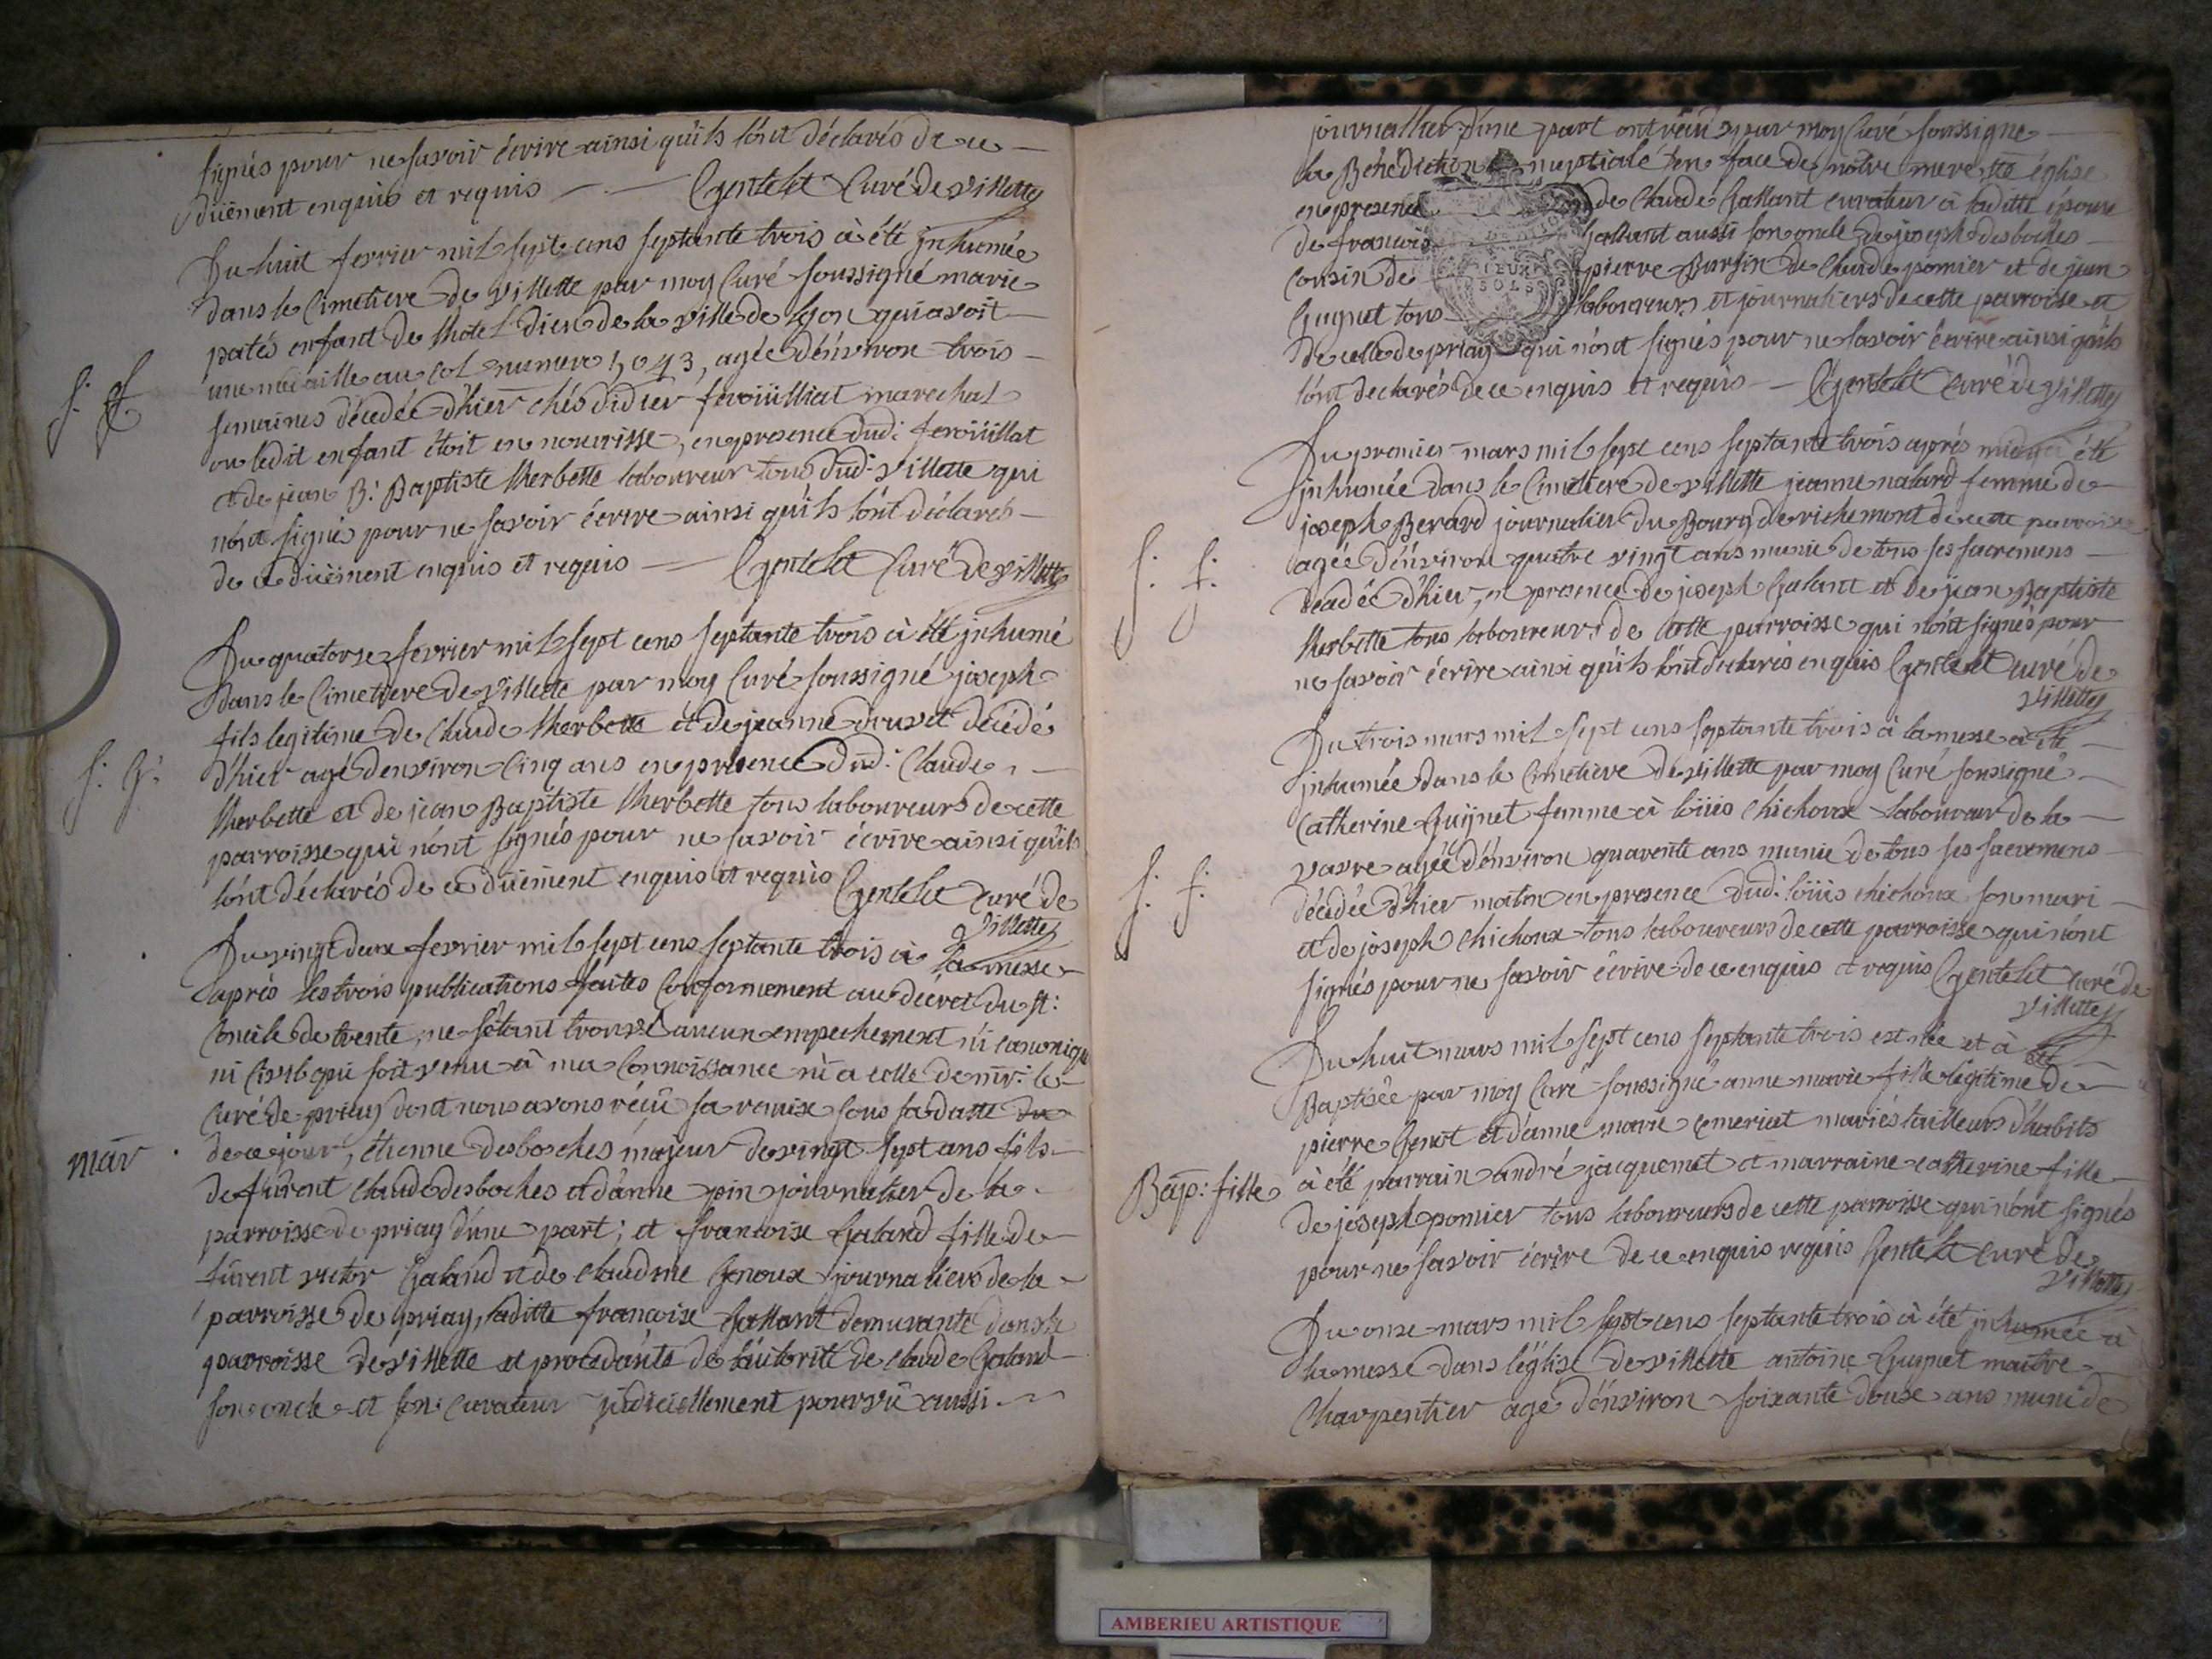 signés pour ne savoir écrire ainsi qu'ils l'ónt déclarés de ce
duëment enquis et requis Gentelet Curé de villette
Du huit fevrier mil sept cens septante trois à été jnhumée
dans le Cimetiere de villette par moy Curé soussigné marie
patés enfant de l'hotel dieu de la ville de lyon qui avoit
une médaille au col numero agée d'énviron trois
semaines décedée d'hier chés didier marechal
ou ledit enfant étoit en nourrisse, en presence dud:
et de jean B: Baptiste Therbette laboureur tous dud: villette qui
n'ónt signés pour ne savoir écrire ainsi qu'ils l'ónt déclarés
de ce duëment enquis et requis Gentelet Curé de villette
f: ff
Du quatorse fevrier mil sept cens septante trois à été jnhumé
dans le Cimetiere de villette par moy Curé soussigné joseph
fils legitime de Claude Therbette et de jeanne druvet decédé
d'hier agé d'environ Cinq ans en presence dud: Claude
Therbette et de jean Baptiste Therbette tous laboureurs de cette
parroisse qui n'ónt signés pour ne savoir écrire ainsi qu'ils
l'ónt déclarés de ce duëment enquis et requis Gentelet Curé de
villette
f: g:
Du vingt deux fevrier mil sept cens septante trois à la messe
après les trois publications faites Conformement au décret du st:
Concile de trente, ne s'étant trouvé aucun empechement ni canonique
ni Civil qui soit venu à ma Connoissance ni a celle de mr: le
Curé de priay dont nous avons réçû sa remise sous sa datte du
de ce jour, étienne desboches majeur de vingt sept ans fils
de furent Claude desboches et d'anne pin journalier de la
parroisse de priay d'une part; et francoise Galand fille de
fûrent victor Galand et de Claudine Genoux journaliers de la
parroisse de priay, laditte francoise Gallant demurante dans la
parroisse de villette et procedante de l'autorité de Claude Galand
son oncle et son Curateur judiciellement pourvû aussi
mar
journallier d'une part ont réçu par moy Curé soussigné
la Bénédiction nuptiale en face de nôtre mere ste église
en presence de Claude Gallant curateur à laditte épouse
de francois Gallant aussi son oncle de joseph desboches
cousin de pierre Bursin de Claude pomier et de jean
Guynet tous laboureurs et journaliers de cette parroisse et
de celle de priay qui n'ónt signés pour ne savoir écrire ainsi qu'ils
l'ónt declarés de ce enquis et requis Gentelet Curé de villette
DEUX
SOLS
Du premier mars mil sept cens septante trois après midy à été
jnhumée dans le Cimetiere de villette jeanne nalard femme de
joseph Berard journalier du Bourg de richemont de cette parroisse
agée d'énviron quatre vingt ans munie de tous ses sacremens
decadée d'hier, en presence de joseph Galant et de jean Baptiste
Therbette tous laboureurs de cette parroisse qui n'ónt signés pour
ne savoir écrire ainsi qu'ils l'ónt declarés enquis Gentelet curé de
villette
f: f:
Du trois mars mil sept cens septante trois à la messe à été
jnhumée dans le Cimetiere de villette par moy Curé sousigné
Catherine Guijnet femme à loüis Chichoux laboureur de la
vavre agée d'énviron quarente ans munie de tous ses sacremens
décedée d'hier matin en presence dud: loüis chichoux son mari
et de joseph Chichoux tous laboureurs de cette parroisse qui n'ónt
signés pour ne savoir écrire de ce enquis et requis Gentelet curé de
villette
f: f:
Du huit mars mil sept cens septante trois est née et à été
Baptisée par moy Curé soussigné anne marie fille légitime de
pierre Genot et d'anne marie emeriat mariés tailleurs d'habits
à été parrain andré jacquemet et marraine catherine fille
de joseph pomier tous laboureurs de cette parroisse qui n'ónt signés
pour ne savoir écrire de ce enquis requis Gentelet Curé de
villette
Bap: fille
Du onse mars mil sept cens septante trois à été jnhumée à
la messe dans l'église de villette antoine Guynet maitre
Charpentier agé d'énviron soixante douse ans muni de
AMBERIEU ARTISTIQUE